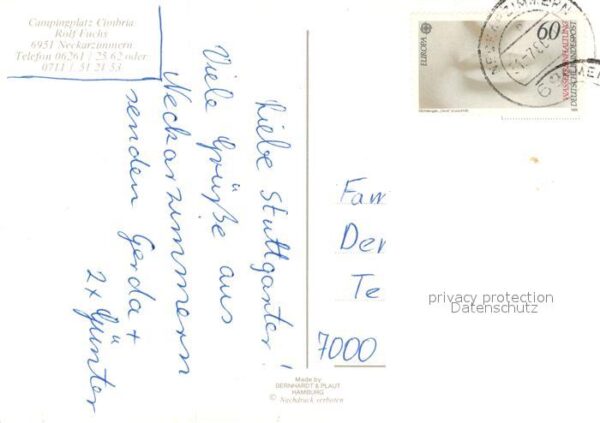 Campingplatz Cimbria
Rolf Fuchs
6951 Neckarzimmern
Telefon 06261 / 25 62 oder
0711 / 51 21 53
Liebe Stuttgarter!
Viele Grüße aus
Neckarzimmern
senden Gerda +
2 x Günter
EUROPA
60
DEUTSCHE BUNDESPOST
NECKARZIMMERN
Fam
Der
Te
7000
privacy protection
Datenschutz
Made by
BERNHARDT & PLAUT
HAMBURG
© Nachdruck verboten